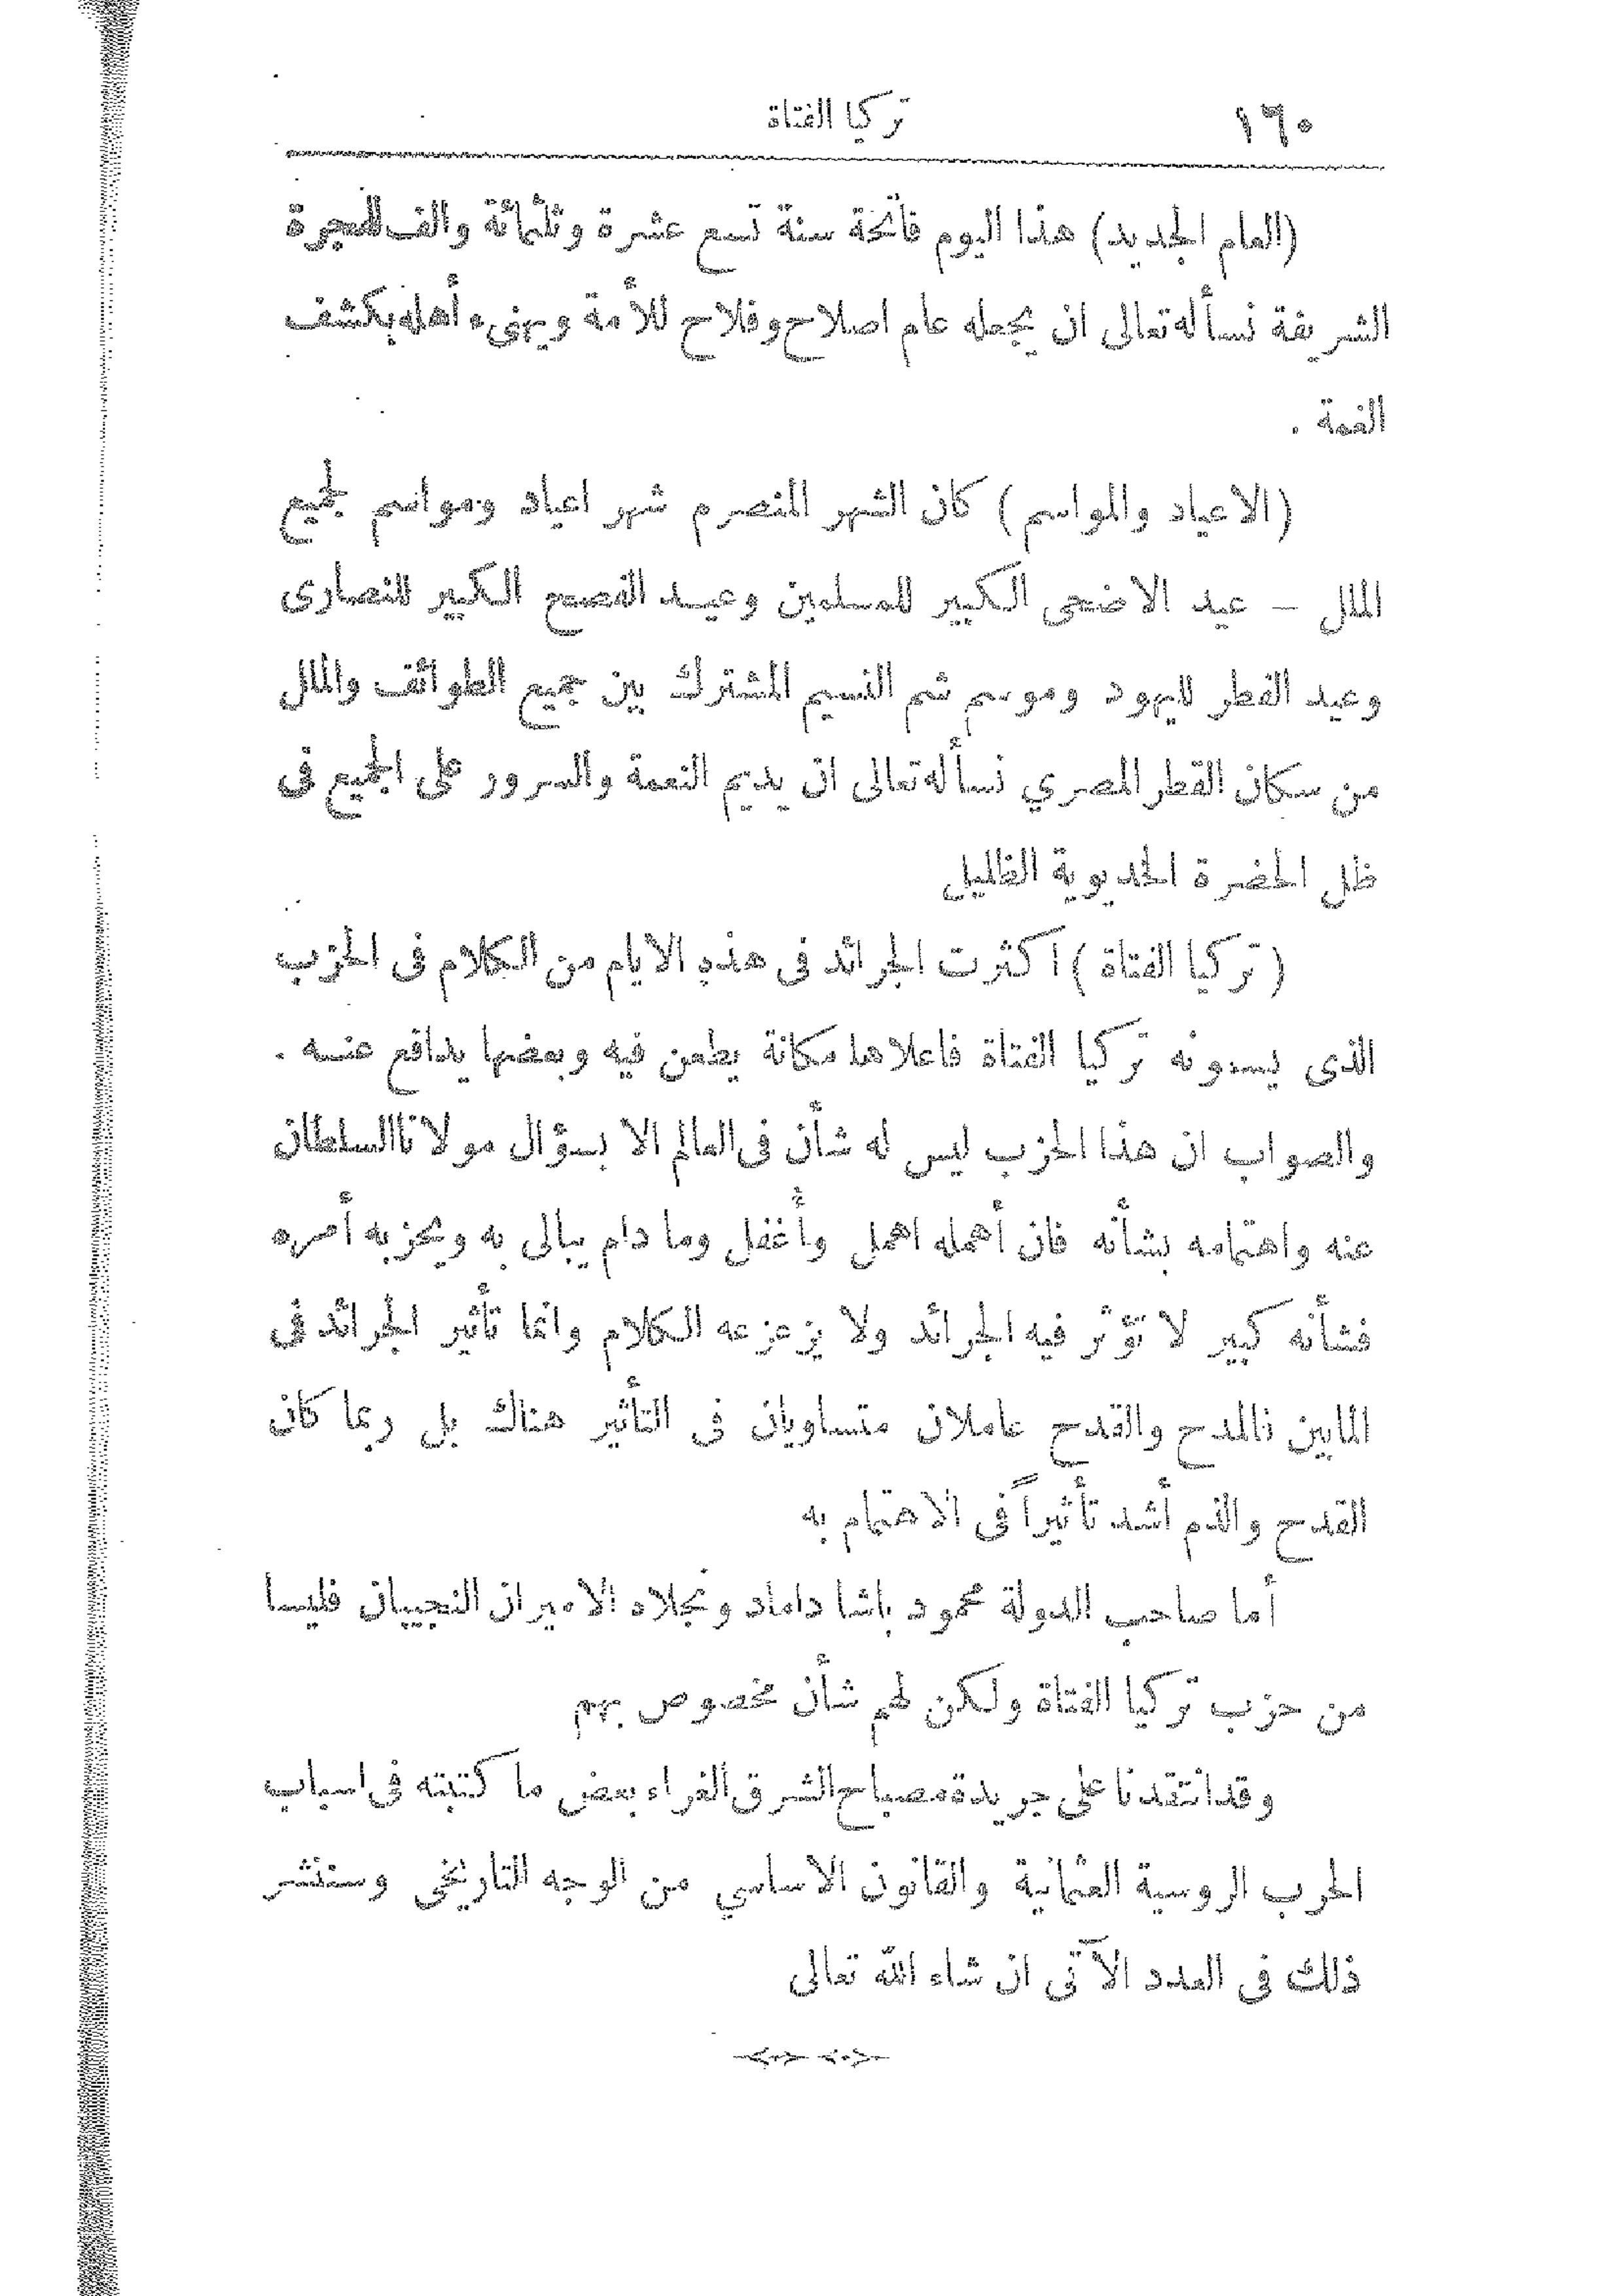 ١٦٠ تركيا الفتاة
(العام الجديد) هذا اليوم فاتحة سنة تسع عشرة وثلثمائة والف للهجرة
الشريفة نسأله تعالى ان يجعله عام اصلاح وفلاح للأمة ويهنىء أهله بكشف
الغمة .
(الاعياد والمواسم) كان الشهر المنصرم شهر اعياد ومواسم لجميع
الملل – عيد الاضحى الكبير للمسلمين وعيد الفصح الكبير للنصارى
وعيد الفطر لليهود وموسم شم النسيم المشترك بين جميع الطوائف والملل
من سكان القطر المصري نسأله تعالى ان يديم النعمة والسرور على الجميع فى
ظل الحضرة الخديوية الظليل
(تركيا الفتاة) اكثرت الجرائد فى هذه الايام من الكلام فى الحزب
الذى يسمونه تركيا الفتاة فاعلاها مكانة يطعن فيه وبعضها يدافع عنه .
والصواب ان هذا الحزب ليس له شأن فى العالم الا بسؤال مولانا السلطان
عنه واهتمامه بشأنه فان أهمله اهمل وأغفل وما دام يبالى به ويحزبه أمره
فشأنه كبير لا تؤثر فيه الجرائد ولا يزعزعه الكلام وانما تأثير الجرائد فى
المابين فالمدح والقدح عاملان متساويان فى التأثير هناك بل ربما كان
القدح والذم أشد تأثيراً فى الاهتمام به
أما صاحب الدولة محمود باشا داماد ونجلاه الاميران النجيبان فليسا
من حزب تركيا الفتاة ولكن لهم شأن مخصوص بهم
وقد انتقدنا على جريدة مصباح الشرق الغراء بعض ما كتبته فى اسباب
الحرب الروسية العثمانية والقانون الاساسي من الوجه التاريخى وسننشر
ذلك فى العدد الآتى ان شاء الله تعالى